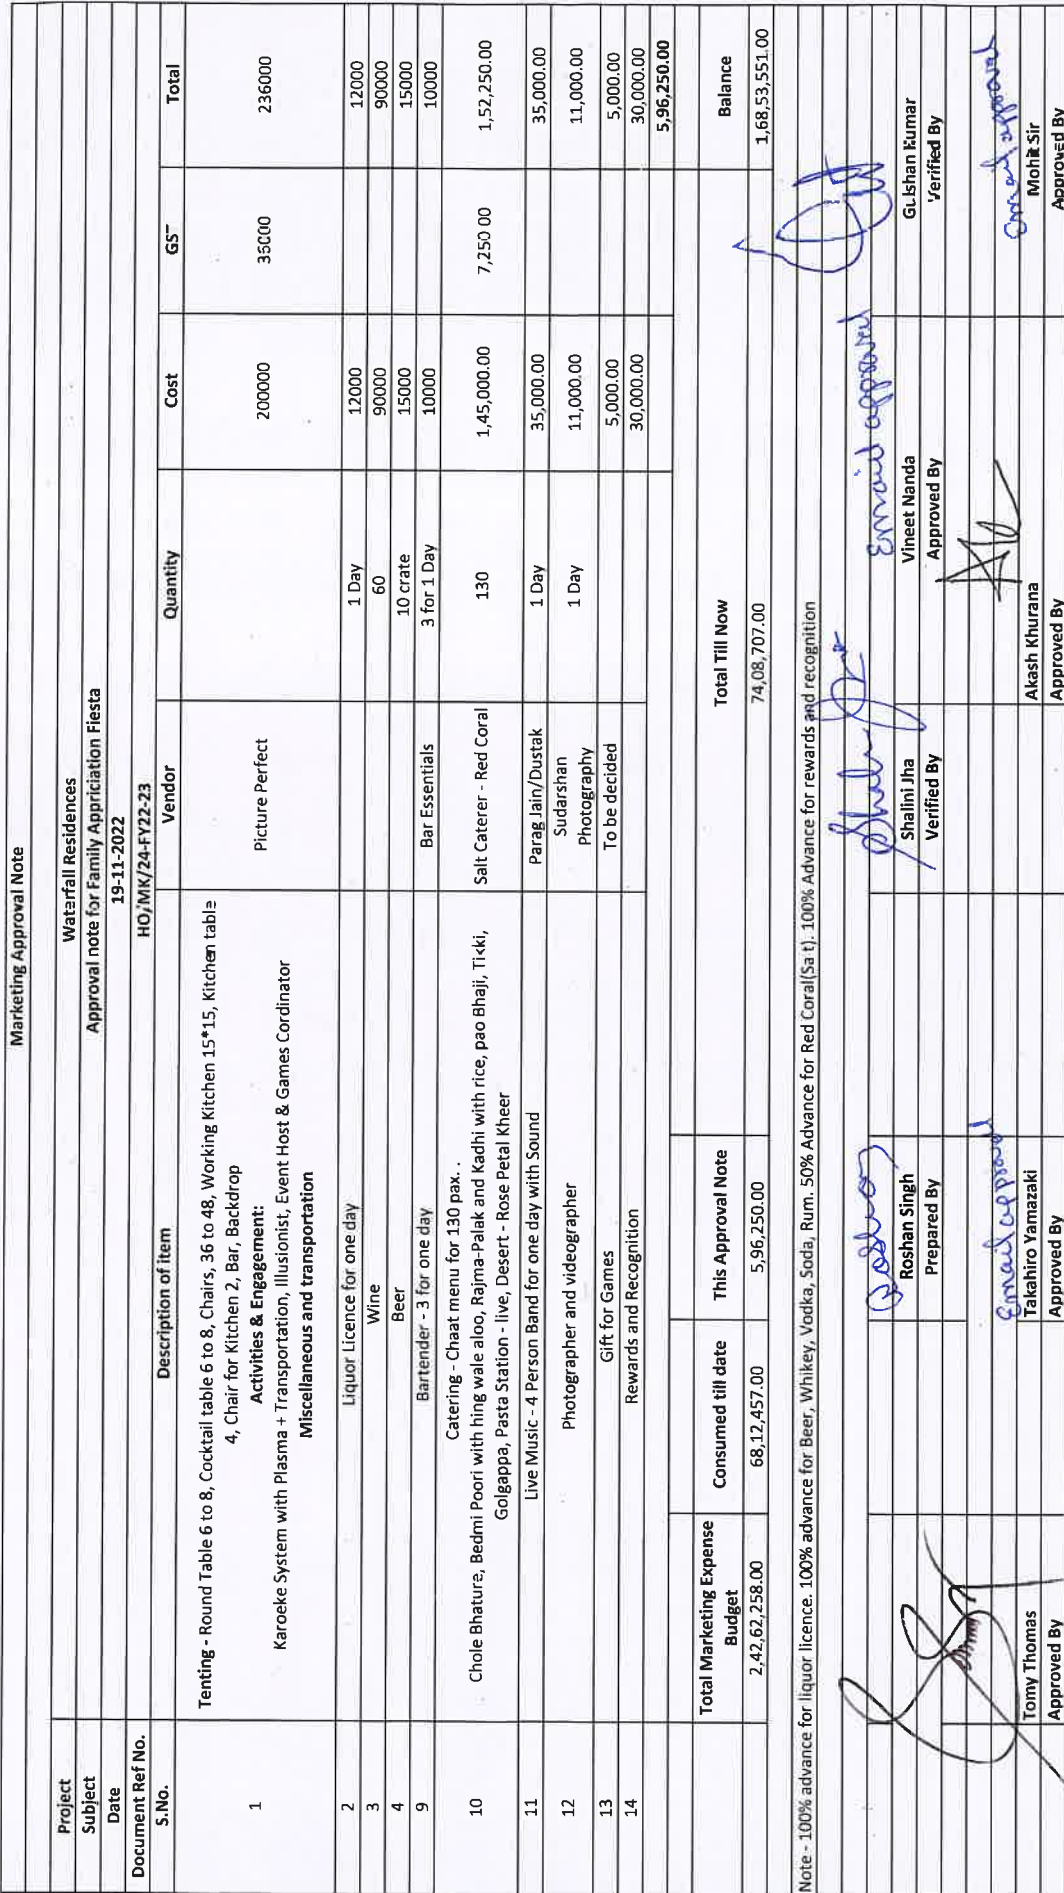 Marketing Approval Note
Project Waterfall Residences
Subject Approval note for Family Appriciation Fiesta
Date 19-11-2022
Document Ref No. HO/MK/24-FY22-23
S.No. Description of item Vendor Quantity Cost GST Total
1 Tenting - Round Table 6 to 8, Cocktail table 6 to 8, Chairs, 36 to 48, Working Kitchen 15*15, Kitchen table
4, Chair for Kitchen 2, Bar, Backdrop
Activities & Engagement:
Karoeke System with Plasma + Transportation, Illusionist, Event Host & Games Cordinator
Miscellaneous and transportation
Picture Perfect 200000 36000 236000
2 Liquor Licence for one day 1 Day 12000 12000
3 Wine 60 90000 90000
4 Beer 10 crate 15000 15000
9 Bartender - 3 for one day Bar Essentials 3 for 1 Day 10000 10000
10 Catering - Chaat menu for 130 pax. .
Chole Bhature, Bedmi Poori with hing wale aloo, Rajma-Palak and Kadhi with rice, pao Bhaji, Tikki,
Golgappa, Pasta Station - live, Desert - Rose Petal Kheer
Salt Caterer - Red Coral 130 1,45,000.00 7,250 00 1,52,250.00
11 Live Music - 4 Person Band for one day with Sound Parag Jain/Dustak 1 Day 35,000.00 35,000.00
12 Photographer and videographer Sudarshan
Photography 1 Day 11,000.00 11,000.00
13 Gift for Games To be decided 5,000.00 5,000.00
14 Rewards and Recognition 30,000.00 30,000.00
5,96,250.00
Total Marketing Expense
Budget Consumed till date This Approval Note Total Till Now Balance
2,42,62,258.00 68,12,457.00 5,96,250.00 74,08,707.00 1,68,53,551.00
Note - 100% advance for liquor licence. 100% advance for Beer, Whikey, Vodka, Soda, Rum. 50% Advance for Red Coral(Sa t). 100% Advance for rewards and recognition
Roshan Shalini Email approval
Roshan Singh Shalini Jha Vineet Nanda Gulshan Kumar
Prepared By Verified By Approved By Verified By
Email approval Email approval
Tomy Thomas Takahiro Yamazaki Akash Khurana Mohit Sir
Approved By Approved By Approved By Approved By